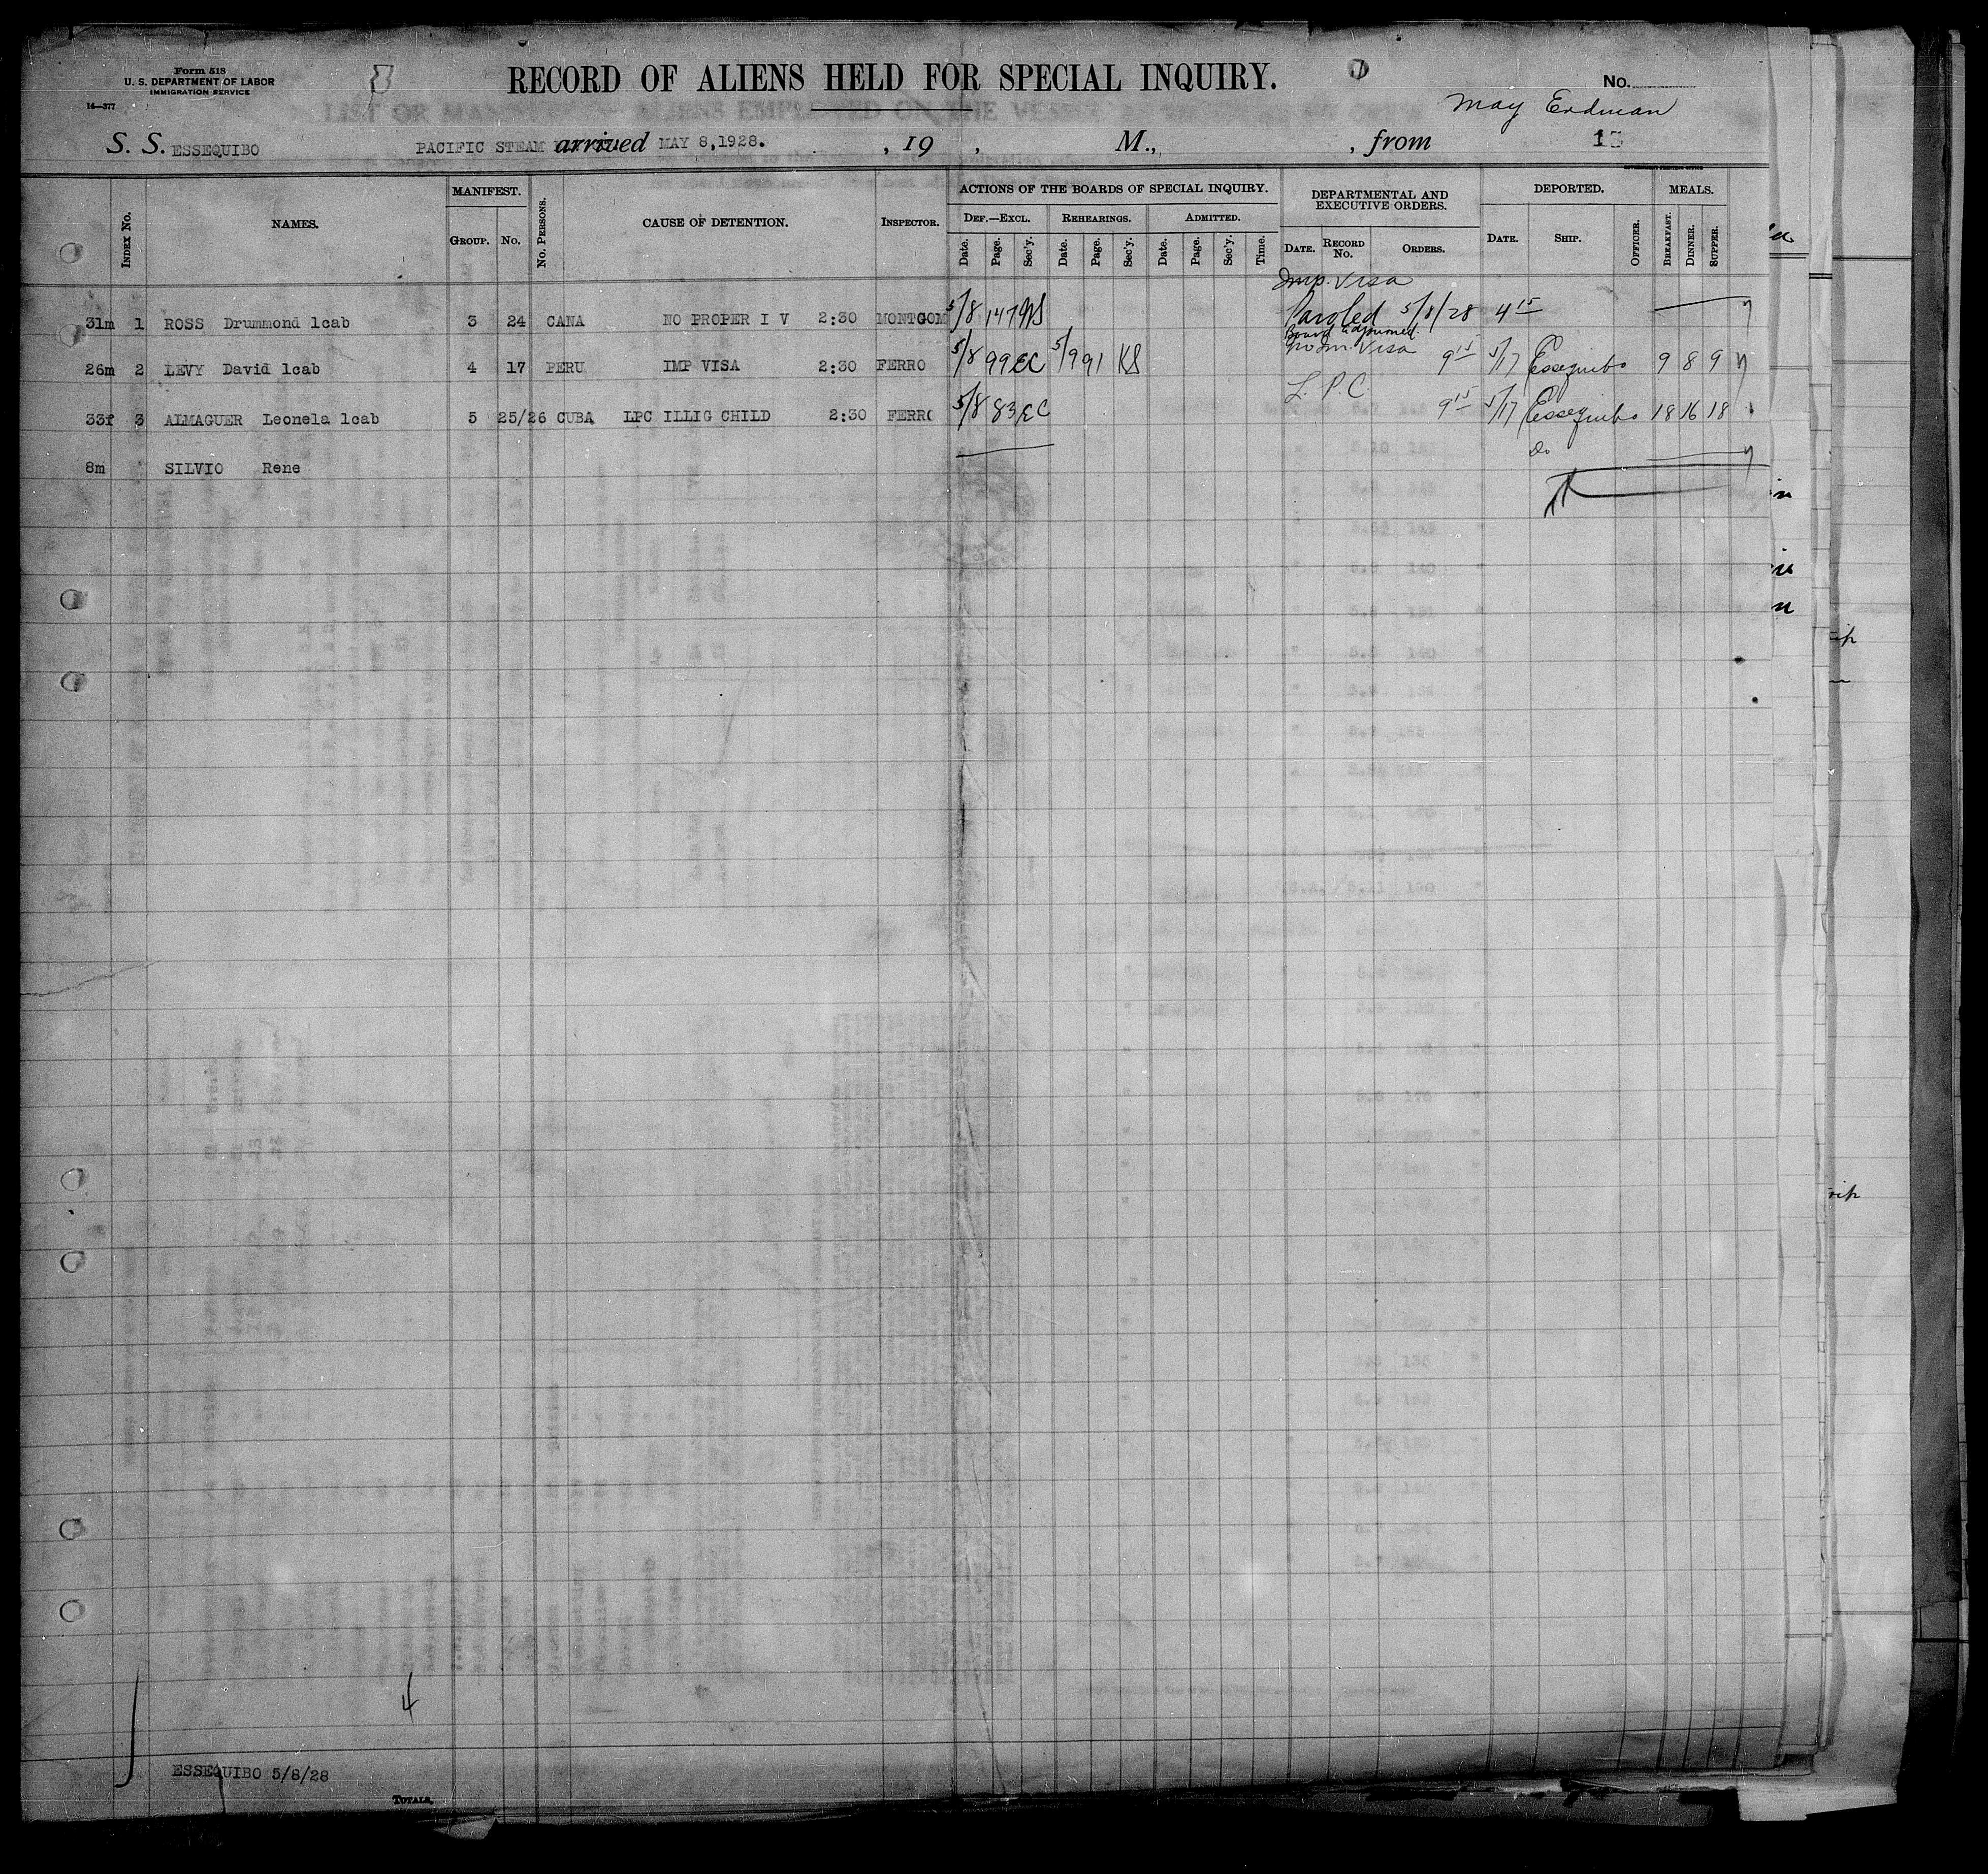 Form 518
U. S. DEPARTMENT OF LABOR
IMMIGRATION SERVICE
14—377
RECORD OF ALIENS HELD FOR SPECIAL INQUIRY.
No.
May Erdman
S. S. ESSEQUIBO PACIFIC STEAM arrived MAY 8,1928. , 19 , M., , from
Index No. NAMES. MANIFEST. Group. No. No. Persons. CAUSE OF DETENTION. Inspector. ACTIONS OF THE BOARDS OF SPECIAL INQUIRY. DEPARTMENTAL AND EXECUTIVE ORDERS. DEPORTED. MEALS.
Def.—Excl. Rehearings. Admitted.
Date. Page. Sec'y. Date. Page. Sec'y. Date. Page. Sec'y. Time. Date. Record No. Orders. Date. Ship. Officer. Breakfast. Dinner. Supper.
Imp. Visa
31m 1 ROSS Drummond 1cab 3 24 CANA NO PROPER I V 2:30 MONTGOM 5/8 147 Paroled 5/8/28 4 15
Board adjourned.
26m 2 LEVY David 1cab 4 17 PERU IMP VISA 2:30 FERRO 5/8 99 EC 5/9 91 KS Visa 9 15 5/17 Essequibo 9 8 9
L. P. C
33f 3 ALMAGUER Leonela 1cab 5 25/26 CUBA LPC ILLIG CHILD 2:30 FERRO 5/8 83 EC 9 15 5/17 Essequibo 18 16 18
8m SILVIO Rene Do
4
ESSEQUIBO 5/8/28
Totals.